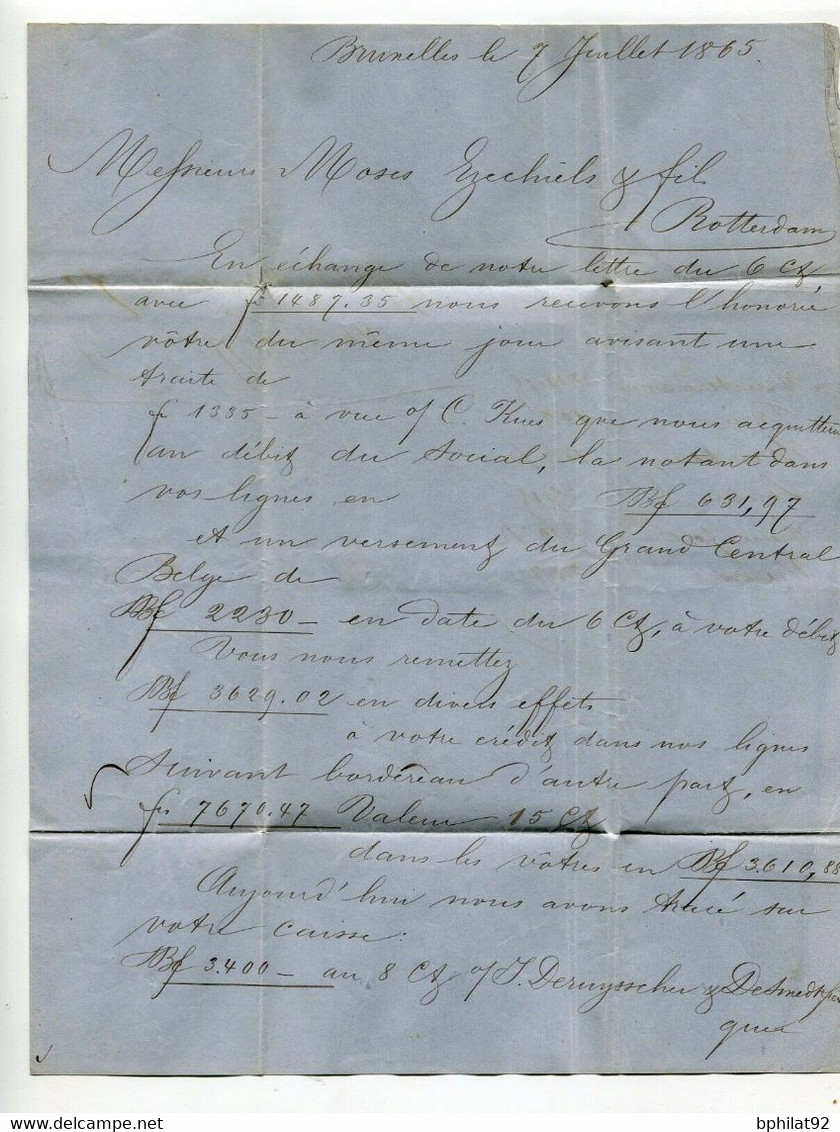 Bruxelles le 7 Juillet 1865.
Messieurs Moses Ezechiels & fils
Rotterdam
En échange de notre lettre du 6 Ct
avec fs 1487.35 nous recevons l'honorée
vôtre du même jour avisant une
traite de
fs 1335 - à vue o/ C. Kues que nous acquitterons
au débit du Social, la notant dans
vos lignes en Bf 631,97
et un versement du Grand Central
Belge de
Bf 2230 - en date du 6 Ct, à votre débit
Vous nous remettez
Bf 3629.02 en divers effets
à votre crédit dans nos lignes
suivant bordereau d'autre part, en
fs 7670.47 Valeur 15 Ct
dans les vôtres en Bf 3.610,88
Aujourd'hui nous avons tracé sur
votre caisse:
Bf 3.400 - au 8 Ct o/ J. Deruysscher & Desmedt
que
bphilat92